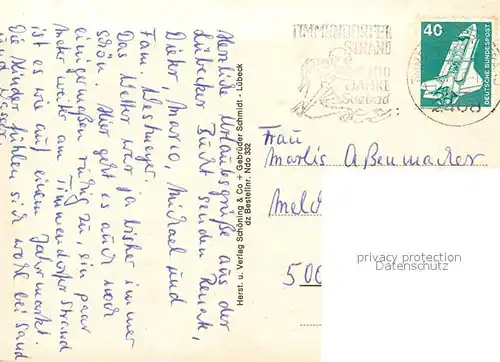 Herzliche Urlaubsgrüße aus der
Lübecker Bucht senden Renate,
Dieter, Marco, Michael und
Fam.
Das Wetter war ja bisher immer
schön. Hier geht es auch noch
einigermaßen ruhig zu, ein paar
Meter weiter am Timmendorfer Strand
ist es wie auf einem Jahrmarkt.
Die Kinder fühlen sich wohl bei Sand
und Wasser.
Herst. u. Verlag Schöning & Co + Gebrüder Schmidt · Lübeck
dz Bestellnr. Ndo 332
TIMMENDORFER
STRAND
JAHRE
Seebad
40
DEUTSCHE BUNDESPOST
Frau
Marlis Aßenmacher
500
privacy protection
Datenschutz